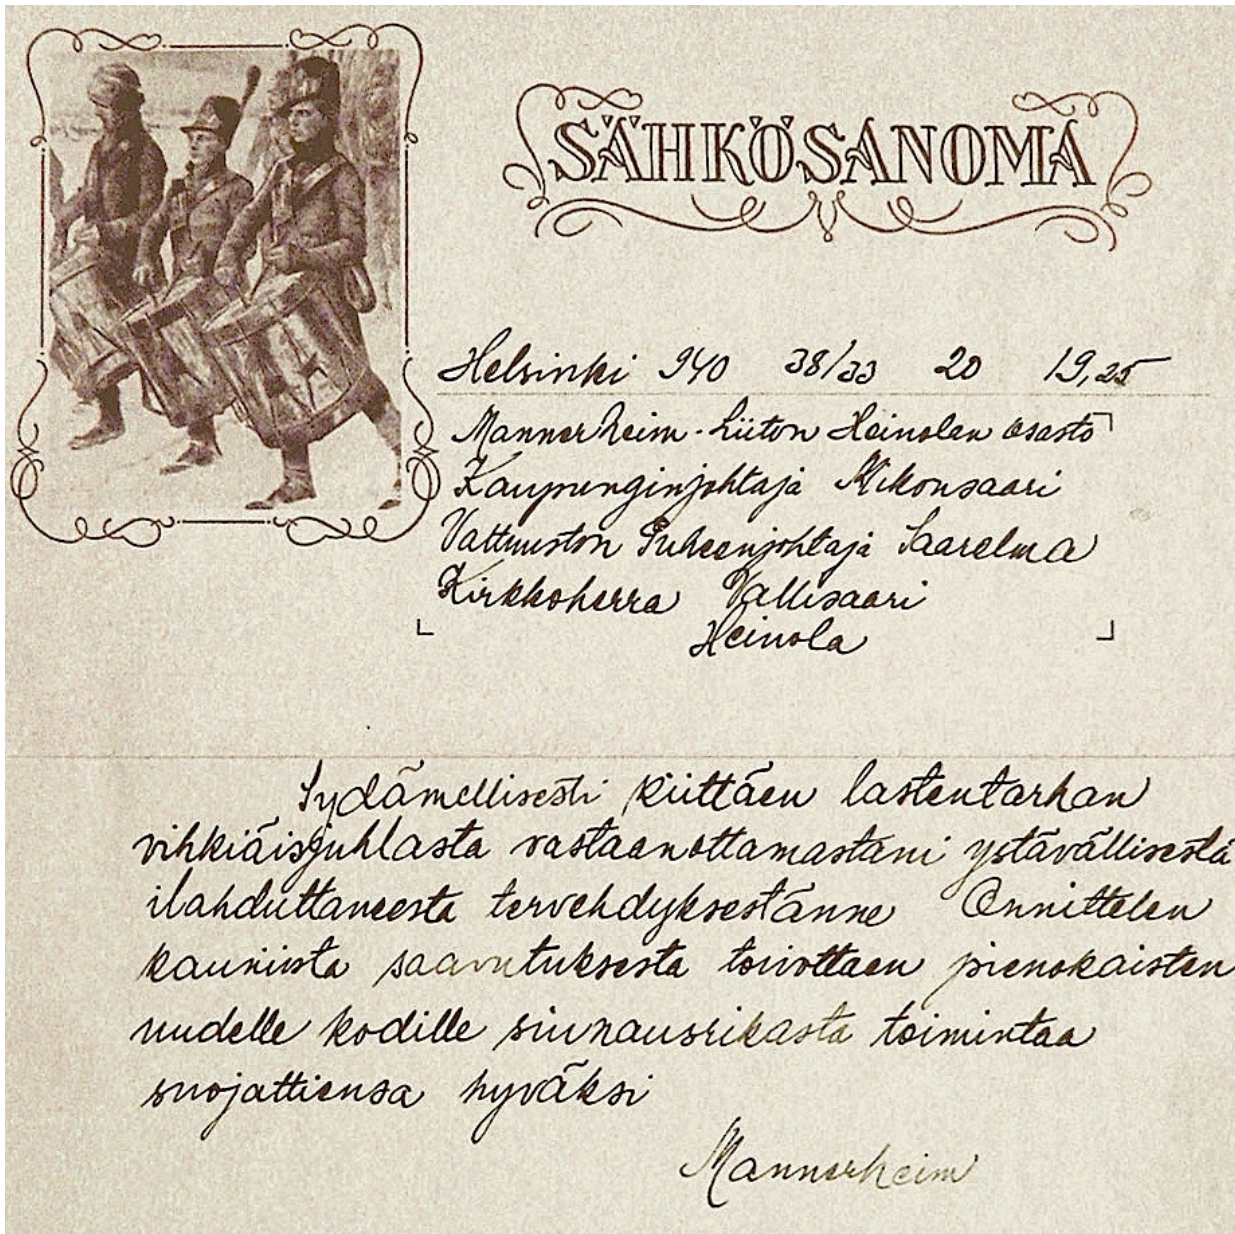 SÄHKÖSANOMA
Helsinki 940 38/33 20 19,25
Mannerheim-Liiton Heinolan osasto
Kaupunginjohtaja Kikonsaari
Valtuuston Puheenjohtaja Saarelma
Kirkkoherra Vallisaari
Heinola
Sydämellisesti kiittäen lastentarhan
vihkiäisjuhlasta vastaanottamastani ystävällisestä
ilahduttaneesta tervehdyksestänne Onnittelen
kauniista saavutuksesta toivottaen pienokaisten
uudelle kodille siunausrikasta toimintaa
suojattiensa hyväksi
Mannerheim